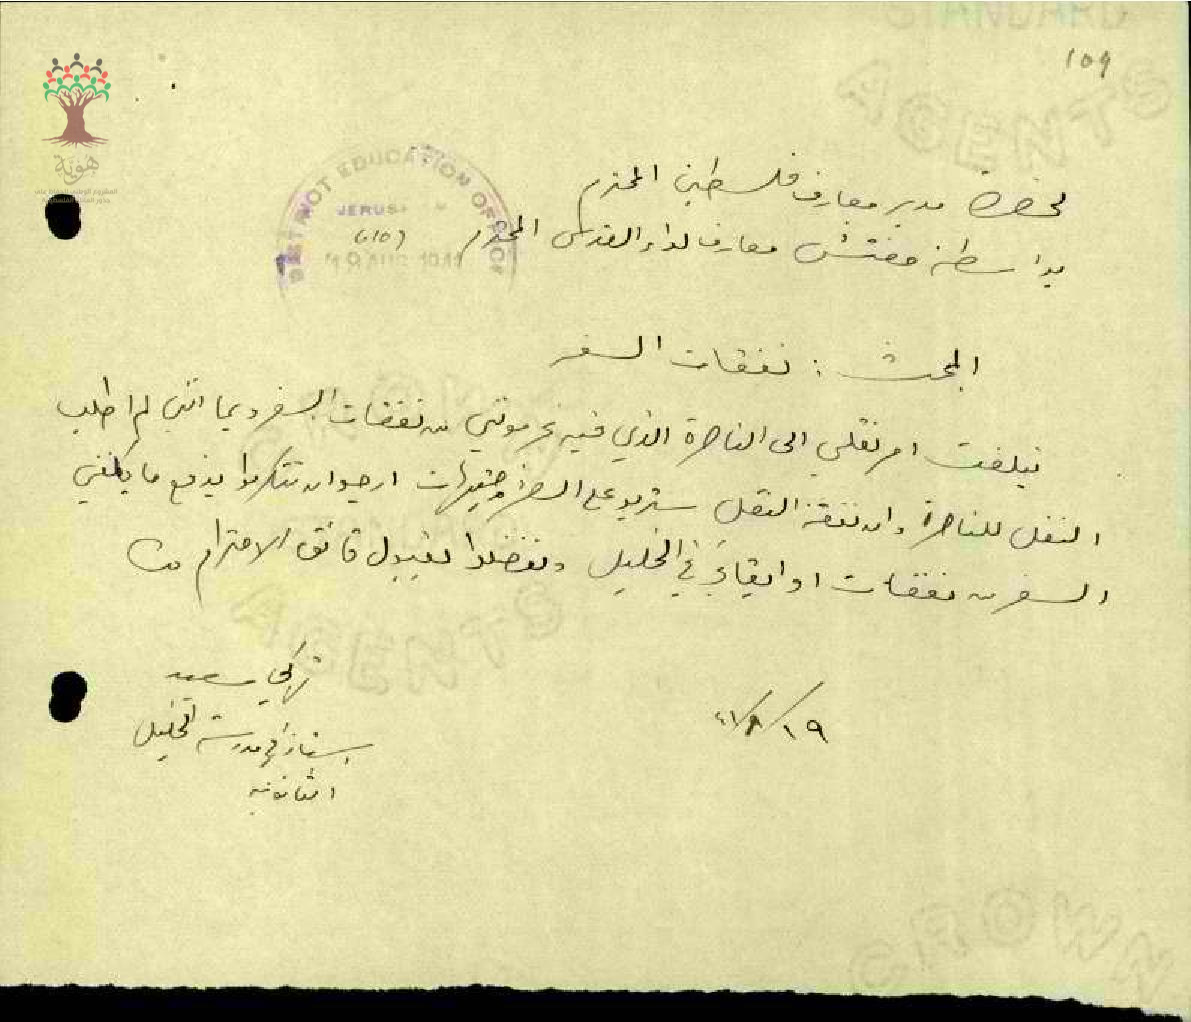 109
هوية
لحضرة مدير معارف فلسطين المحترم
بواسطة مفتش معارف لواء القدس المحترم
DISTRICT EDUCATION OFFICE
JERUSALEM
(107)
19 AUG 1941
البحث : نفقات السفر
تبلغت امر نقلي الى الناصرة الذي فيه تحرمونني من نفقات السفر وبما انني لم اطلب
النقل للناصرة وان نفقة النقل ستربو على العشرة جنيهات ارجو ان تتكرموا بدفع ما يكلفني
السفر من نفقات او ابقائي في الخليل وتفضلوا بقبول فائق الاحترام
تركي سعيد
استاذ في مدرسة الخليل
الثانوية
١٩/٨/٤١
STANDARD
AGENTS
CROWN
AGENTS
CROWN